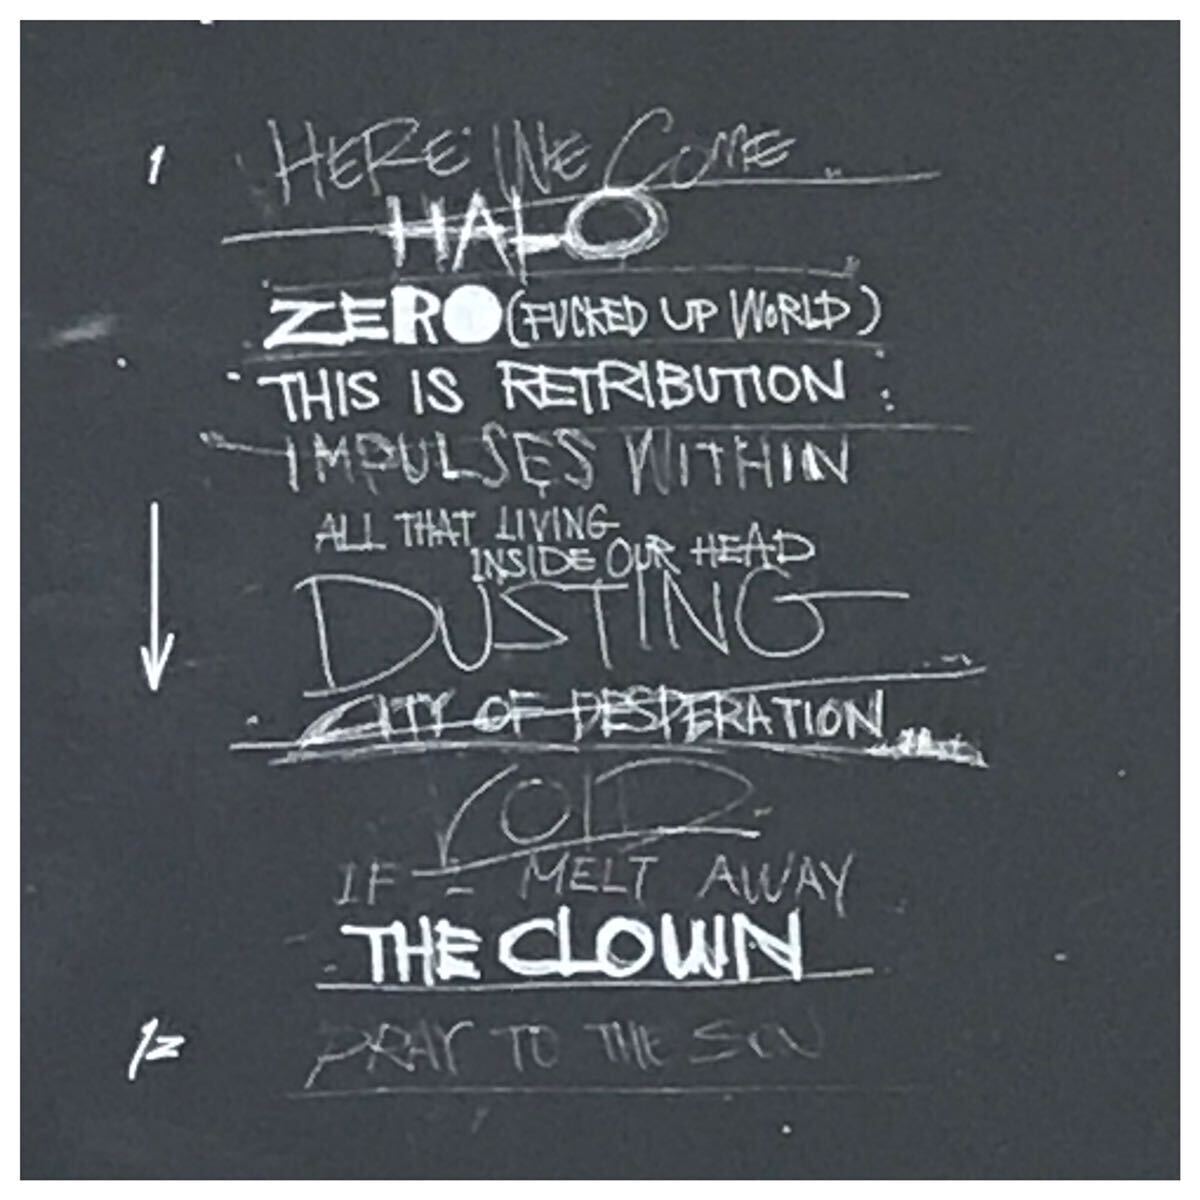 1 HERE WE COME
HALO
ZERO (FUCKED UP WORLD)
THIS IS RETRIBUTION
IMPULSES WITHIN
ALL THAT LIVING
INSIDE OUR HEAD
DUSTING
CITY OF DESPERATION
VOID
IF I MELT AWAY
THE CLOWN
12 PRAY TO THE SUN